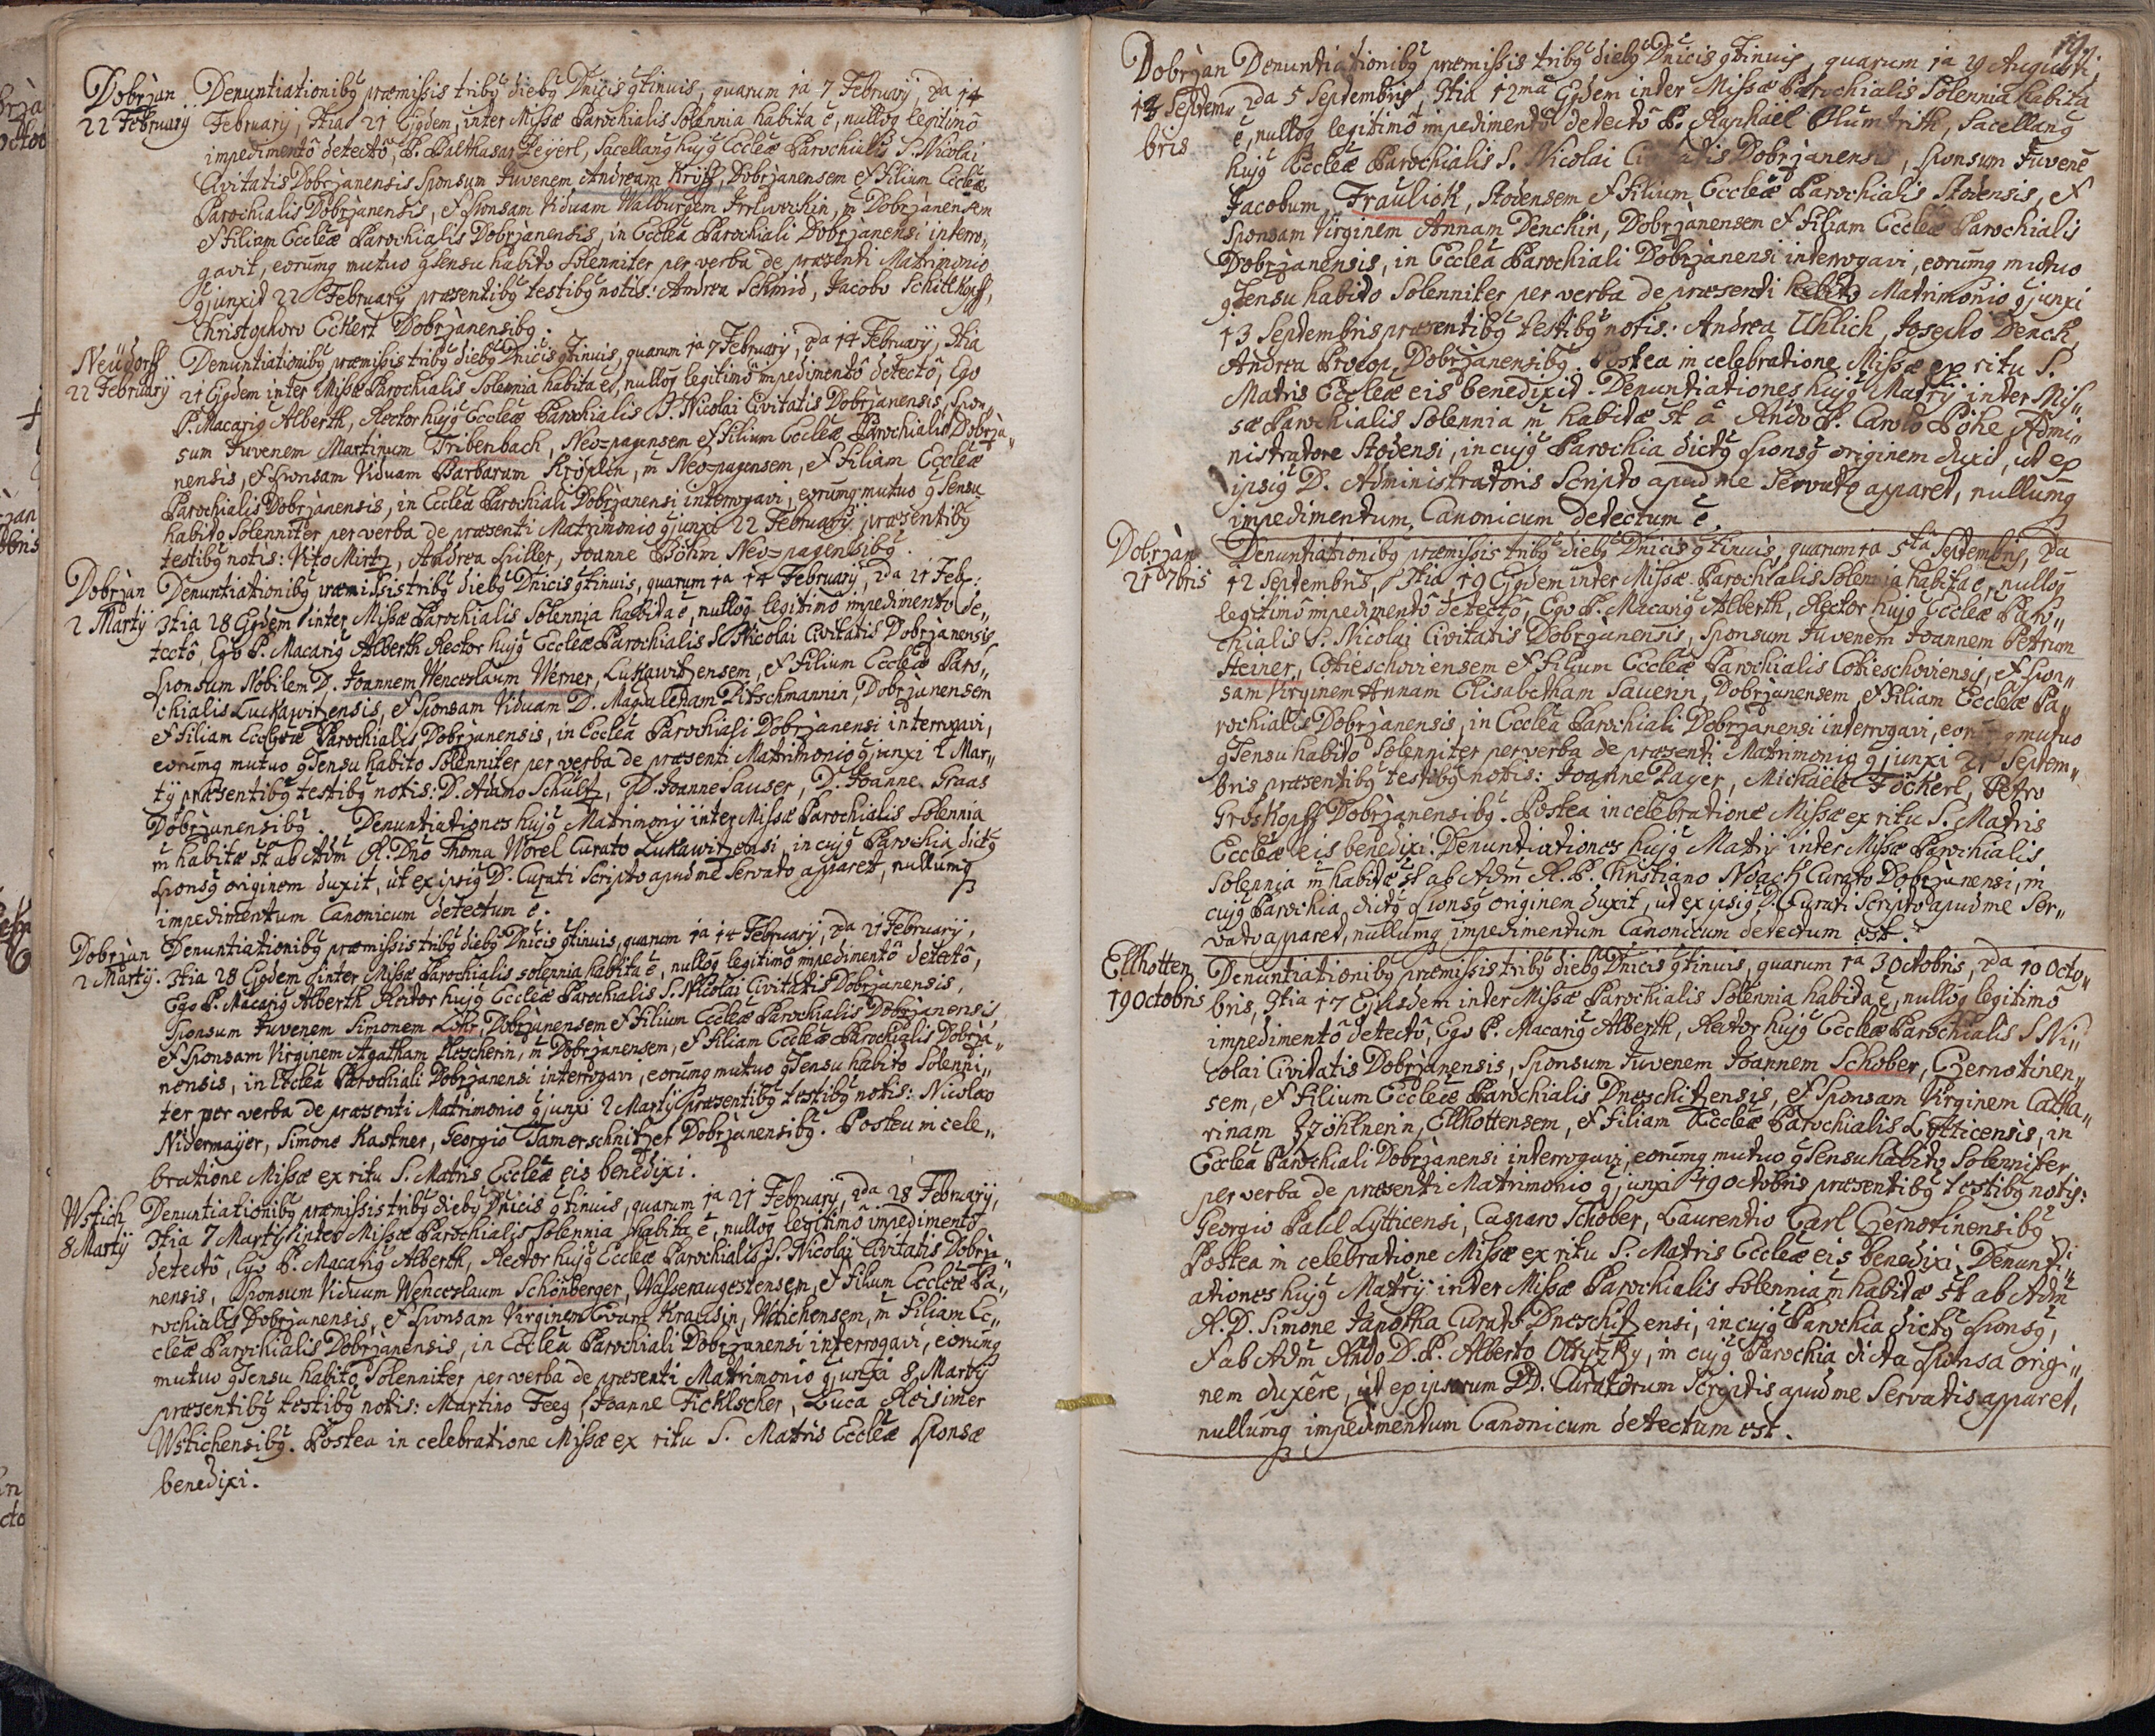 Dobrzan
22 February
Denuntiationibꝰ præmissis tribꝰ diebꝰ Dnicis 9tinuis, quarum 1a 7 February, 2da 14
February, 3tia 21 Ejꝰdem, inter Missæ Parochialis Solennia habita ē, nullōq legitimô
impedimentô detectô, P. Balthasar Zeyerl, Sacellanꝰ hujꝰ Eccleæ Parochialis S. Nicolai
Civitatis Dobrzanensis Sponsum Juvenem Andream Kröpf, Dobrzanensem et Filium Eccleæ
Parochialis Dobrzanensis, et Sponsam Viduam Walburgem, m̄ Dobrzanensem
et Filiam Eccleæ Parochialis Dobrzanensis, in Ecclea Parochiali Dobrzanensi interro„
gavit, eorumq mutuo 9sensu habito Solenniter per verba de præsenti Matrimonio
9junxit 22 February præsentibꝰ testibꝰ notis: Andrea Schmid, Jacobo Schittkopf,
Christophoro Eckert Dobrzanensibꝰ.
Neüdorff
22 February
Denuntiationibꝰ præmissis tribꝰ diebꝰ Dnicis 9tinuis, quarum 1a 7 February, 2da 14 February, 3tia
21 Ejꝰdem inter Missæ Parochialis Solennia habita ē, nullōq legitimô impedimentô detectô, Ego
P. Macariꝰ Alberth, Rector hujꝰ Eccleæ Parochialis S. Nicolai Civitatis Dobrzanensis, Spon„
sum Juvenem Martinum Tribenbach, Neo=pagensem et Filium Eccleæ Parochialis Dobrza„
nensis, et Sponsam Viduam Barbaram Kröplin, m̄ Neo=pagensem, et Filiam Eccleæ
Parochialis Dobrzanensis, in Ecclea Parochiali Dobrzanensi interrogavi, eorumq mutuo 9sensu
habito Solenniter per verba de præsenti Matrimonio 9junxi 22 February præsentibꝰ
testibꝰ notis: Vito Mirtz, Andrea Spiller, Joanne Böhm Neo=pagensibꝰ.
Dobrzan
2 Martÿ
Denuntiationibꝰ præmissis tribꝰ diebꝰ Dnicis 9tinuis, quarum 1a 14 February, 2da 21 Febr:
3tia 28 Ejꝰdem inter Missæ Parochialis Solennia habita ē, nullōq legitimô impedimentô de„
tectô, Ego P. Macariꝰ Alberth Rector hujꝰ Eccleæ Parochialis S. Nicolai Civitatis Dobrzanensis,
Sponsum Nobilem D. Joannem Wenceslaum Werner, Lukawitzensem, et Filium Eccleæ Paro„
chialis Luckawitzensis, et Sponsam Viduam D. Magdalenam Pitschmannin, Dobrzanensem
et Filiam Eccleæ Parochialis Dobrzanensis, in Ecclea Parochiali Dobrzanensi interrogavi,
eorumq mutuo 9sensu habito Solenniter per verba de præsenti Matrimonio 9junxi 2 Mar„
tÿ præsentibꝰ testibꝰ notis: D. Adamo Schultz, D. Joanne Sauser, D. Joanne Graas
Dobrzanensibꝰ. Denuntiationes hujꝰ Matrimonÿ inter Missæ Parochialis Solennia
m̄ habitæ st ab Adm̄ R. Dno Thoma Worel Curato Lukawitzensi, in cujꝰ Parochia dictꝰ
Sponsꝰ originem duxit, ut ex ipsiꝰ D. Curati Scripto apud me Servato apparet, nullumq
impedimentum Canonicum detectum ē.
Dobrzan
2 Martÿ.
Denuntiationibꝰ præmissis tribꝰ diebꝰ Dnicis 9tinuis, quarum 1a 14 February, 2da 21 February,
3tia 28 Ejꝰdem inter Missæ Parochialis solennia habita ē, nullōq legitimô impedimentô detectô,
Ego P. Macariꝰ Alberth Rector hujꝰ Eccleæ Parochialis S. Nicolai Civitatis Dobrzanensis,
Sponsum Juvenem Simonem Löhr, Dobrzanensem et Filium Eccleæ Parochialis Dobrzanensis,
et Sponsam Virginem Agatham Fleischerin, m̄ Dobrzanensem, et Filiam Eccleæ Parochialis Dobrza„
nensis, in Ecclea Parochiali Dobrzanensi interrogavi, eorumq mutuo 9sensu habito Solenni„
ter per verba de præsenti Matrimonio 9junxi 2 Martÿ præsentibꝰ testibꝰ notis: Nicolao
Nidermaÿer, Simone Kastner, Georgio Tamerschnitzer Dobrzanensibꝰ. Postea in cele„
bratione Missæ ex ritu S. Matris Eccleæ eis benedixi.
Wstich
8 Martÿ
Denuntiationibꝰ præmissis tribꝰ diebꝰ Dnicis 9tinuis, quarum 1a 21 February, 2da 28 February,
3tia 7 Martÿ inter Missæ Parochialis Solennia habita ē, nullōq legitimô impedimentô
detectô, Ego P. Macariꝰ Alberth, Rector hujꝰ Eccleæ Parochialis S. Nicolai Civitatis Dobrza„
nensis, Sponsum Viduum Wenceslaum Schönberger, Wasseraugestensem, et Filium Eccleæ Pa„
rochialis Dobrzanensis, et Sponsam Virginem Evam Krausin, Wstichensem, m̄ Filiam Ec„
cleæ Parochialis Dobrzanensis, in Ecclea Parochiali Dobrzanensi interrogavi, eorumq
mutuo 9sensu habito Solenniter per verba de præsenti Matrimonio 9junxi 8 Martÿ
præsentibꝰ testibꝰ notis: Martino Feeg, Joanne Ficklscher, Luca Reisimer
Wstichensibꝰ. Postea in celebratione Missæ ex ritu S. Matris Eccleæ Sponsæ
benedixi.
Dobrzan
13 Septem„
bris
Denuntiationibꝰ præmissis tribꝰ diebꝰ Dnicis 9tinuis, quarum 1a 29 Augusti,
2da 5 Septembris, 3tia 12ma Ejꝰdem inter Missæ Parochialis Solennia habita
ē, nullōq legitimô impedimentô detectô P. Raphaël Blumtrith, Sacellanꝰ
hujꝰ Eccleæ Parochialis S. Nicolai Civitatis Dobrzanensis, Sponsum Juvenē
Jacobum Fraulick, Stodensem et Filium Eccleæ Parochialis Stodensis, et
Sponsam Virginem Annam Denckin, Dobrzanensem et Filiam Eccleæ Parochialis
Dobrzanensis, in Ecclea Parochiali Dobrzanensi interrogavi, eorumq mutuo
9sensu habito Solenniter per verba de præsenti habito Matrimonio 9junxi
13 Septembris præsentibꝰ testibꝰ notis: Andrea Uhlich, Josepho Denck,
Andrea Prokop, Dobrzanensibꝰ. Postea in celebratione Missæ ex ritu S.
Matris Eccleæ eis benedixit. Denuntiationes hujꝰ Matrÿ inter Mis„
sæ Parochialis Solennia m̄ habitæ st â Rndo P. Carolo Pöhe Admi„
nistratore Stodensi, in cujꝰ Parochia dictꝰ Sponsꝰ originem duxit, ut ex
ipsiꝰ D. Administratoris Scripto apud me Servato apparet, nullumq
impedimentum Canonicum detectum ē.
Dobrzan
21 7bris
Denuntiationibꝰ præmissis tribꝰ diebꝰ Dnicis 9tinuis, quarum 1a 5ta Septembris, 2da
12 Septembris, 3tia 19 Ejꝰdem inter Missæ Parochialis Solennia habita ē, nullōq
legitimô impedimentô detectô, Ego P. Macariꝰ Alberth, Rector hujꝰ Eccleæ Paro„
chialis S. Nicolai Civitatis Dobrzanensis, Sponsum Juvenem Joannem Petrum
Steiner, Cotieschoviensem et Filium Eccleæ Parochialis Cotieschoviensis, et Spon„
sam Virginem Annam Elisabetham Sauerin, Dobrzanensem, et Filiam Eccleæ Pa„
rochialis Dobrzanensis, in Ecclea Parochiali Dobrzanensi interrogavi, eorumq mutuo
9sensu habito Solenniter per verba de præsenti Matrimonio 9junxi 21 Septem„
bris præsentibꝰ testibꝰ notis: Joanne Payer, Michaële Föckerl, Petro
Groskopff Dobrzanensibꝰ. Postea in celebratione Missæ ex ritu S. Matris
Eccleæ eis benedixi. Denuntiationes hujꝰ Matrÿ inter Missæ Parochialis
Solennia m̄ habitæ st ab Adm̄ R. P. Christiano Noack Curato Dobrzanensi, in
cujꝰ Parochia dictꝰ Sponsꝰ originem duxit, ut ex ipsiꝰ D. Curati Scripto apud me Ser„
vato apparet, nullumq impedimentum Canonicum detectum est.
Ellhotten
19 Octobris
Denuntiationibꝰ præmissis tribꝰ diebꝰ Dnicis 9tinuis, quarum 1a 3 Octobris, 2da 10 Octo„
bris, 3tia 17 Ejusdem inter Missæ Parochialis Solennia habita ē, nullōq legitimô
impedimentô detectô, Ego P. Macariꝰ Alberth, Rector hujꝰ Eccleæ Parochialis S. Ni„
colai Civitatis Dobrzanensis, Sponsum Juvenem Joannem Schober, Czernotinen„
sem, et Filium Eccleæ Parochialis Dneschitzensis, et Sponsam Virginem Catha„
rinam, Ellhottensem, et Filiam Eccleæ Parochialis Lÿtticensis, in
Ecclea Parochiali Dobrzanensi interrogavi, eorumq mutuo 9sensu habito Solenniter
per verba de præsenti Matrimonio 9junxi 19 Octobris præsentibꝰ testibꝰ notis:
Georgio Palil Lÿtticensi, Casparo Schober, Laurentio Carl Czernotinensibꝰ
Postea in celebratione Missæ ex ritu S. Matris Eccleæ eis benedixi. Denunti„
ationes hujꝰ Matrÿ inter Missæ Parochialis Solennia m̄ habitæ st ab Adm̄
R. D. Simone Japotka Curato Dneschitzensi, in cujꝰ Parochia dictꝰ Sponsꝰ,
et ab Adm̄ Rndo D. P. Alberto, in cujꝰ Parochia dicta Sponsa origi„
nem duxêre, ut ex ipsorum DD. Curatorum Scriptis apud me Servatis apparet,
nullumq impedimentum Canonicum detectum est.